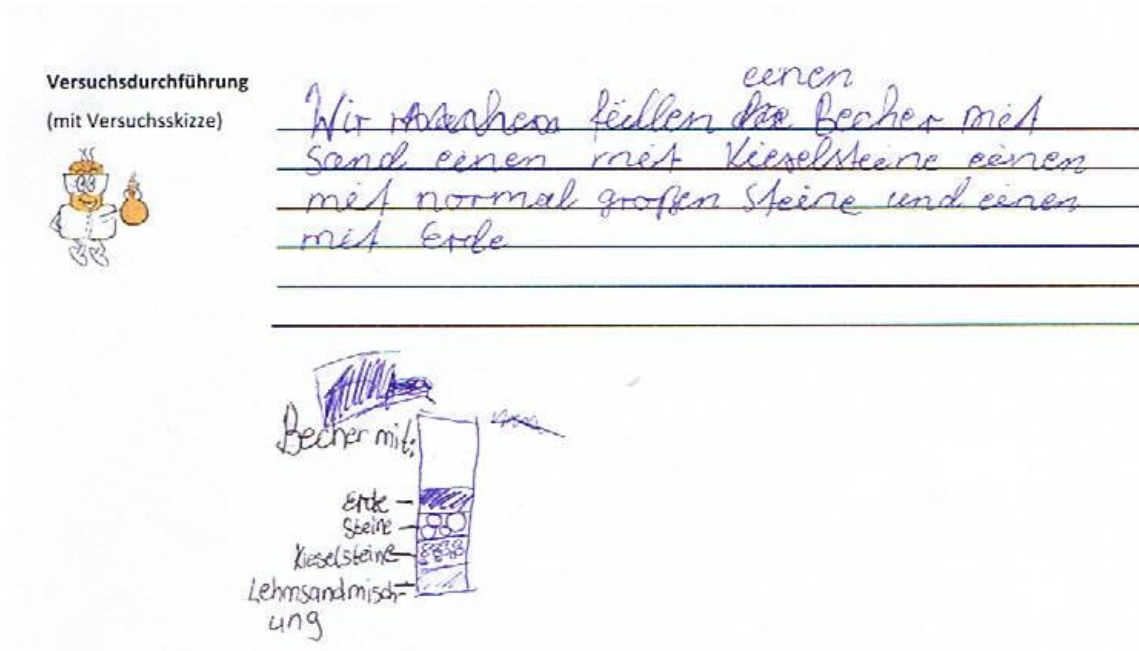 Versuchsdurchführung
(mit Versuchsskizze)
einen
Wir füllen Becher mit
Sand einen mit Kieselsteine einen
mit normal großen Steine und einen
mit Erde
Becher mit:
Erde
Steine
Kieselsteine
Lehmsandmisch-
ung